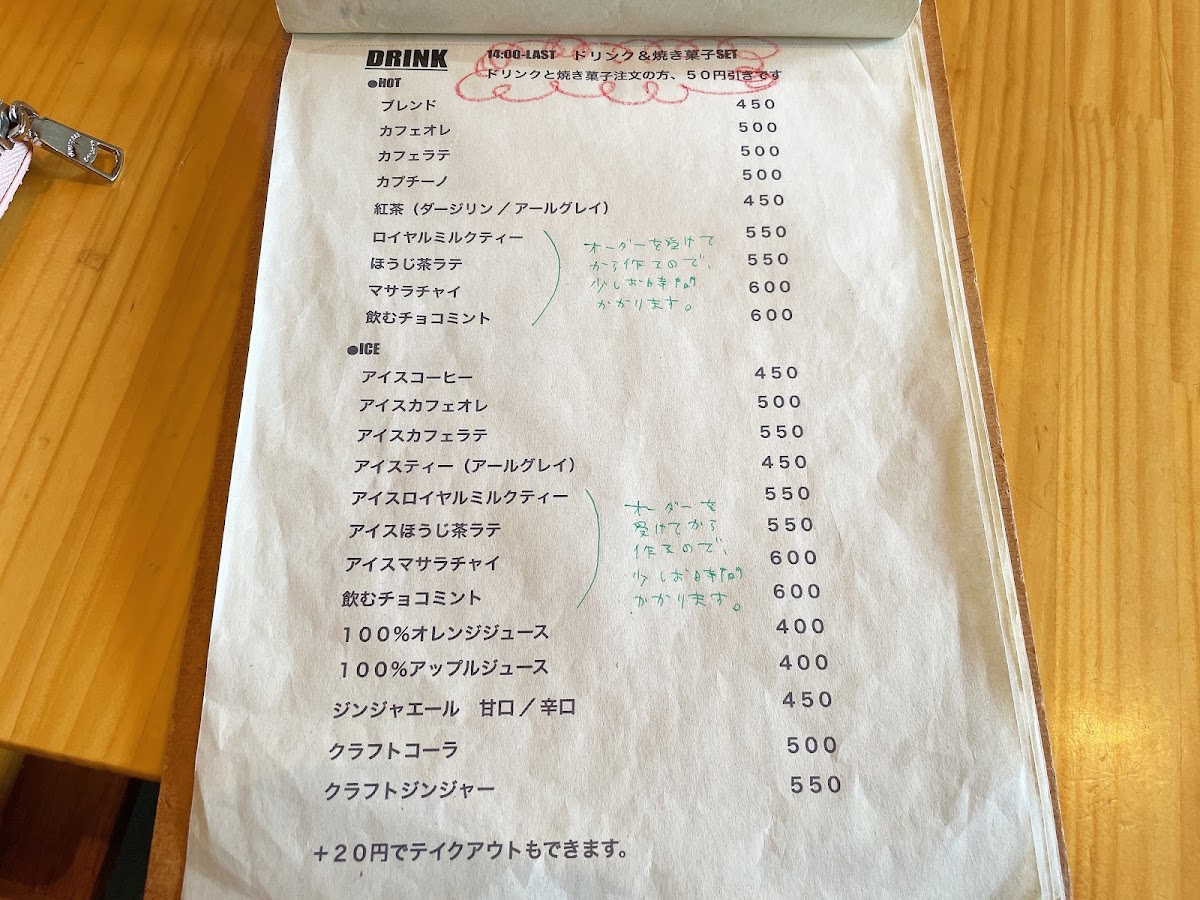 DRINK
14:00-LAST ドリンク＆焼き菓子SET
ドリンクと焼き菓子注文の方、５０円引きです
●HOT
ブレンド 450
カフェオレ 500
カフェラテ 500
カプチーノ 500
紅茶（ダージリン／アールグレイ） 450
ロイヤルミルクティー 550
ほうじ茶ラテ 550
マサラチャイ 600
飲むチョコミント 600
オーダーを受けて
から作るので、
少しお時間
かかります。
●ICE
アイスコーヒー 450
アイスカフェオレ 500
アイスカフェラテ 550
アイスティー（アールグレイ） 450
アイスロイヤルミルクティー 550
アイスほうじ茶ラテ 550
アイスマサラチャイ 600
飲むチョコミント 600
オーダーを
受けてから
作るので、
少しお時間
かかります。
１００％オレンジジュース 400
１００％アップルジュース 400
ジンジャエール　甘口／辛口 450
クラフトコーラ 500
クラフトジンジャー 550
＋２０円でテイクアウトもできます。